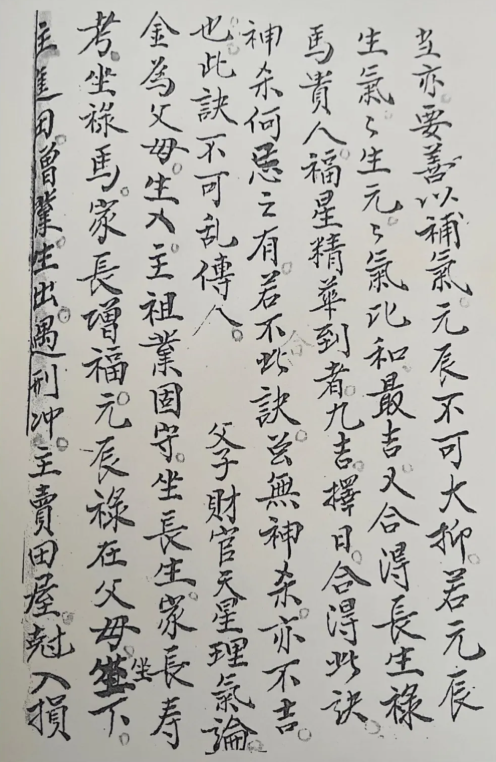 坐亦。要善以補氣。元辰不可大抑。若元辰
生氣〻生元〻氣比和最吉又合得長生祿
馬貴人。福星精華到者。九吉。擇日合得此訣
神杀何忌之有。若不此訣。芸無神杀亦不吉
也。此訣不可乱傳人。
父子財官天星理氣論。
金為父母。生入主祖業固守。坐長生家長寿
考。坐祿馬。家長增福。元辰祿在父母坐下。
主進田增業。生出遇刑冲。主賣田屋。尅入損